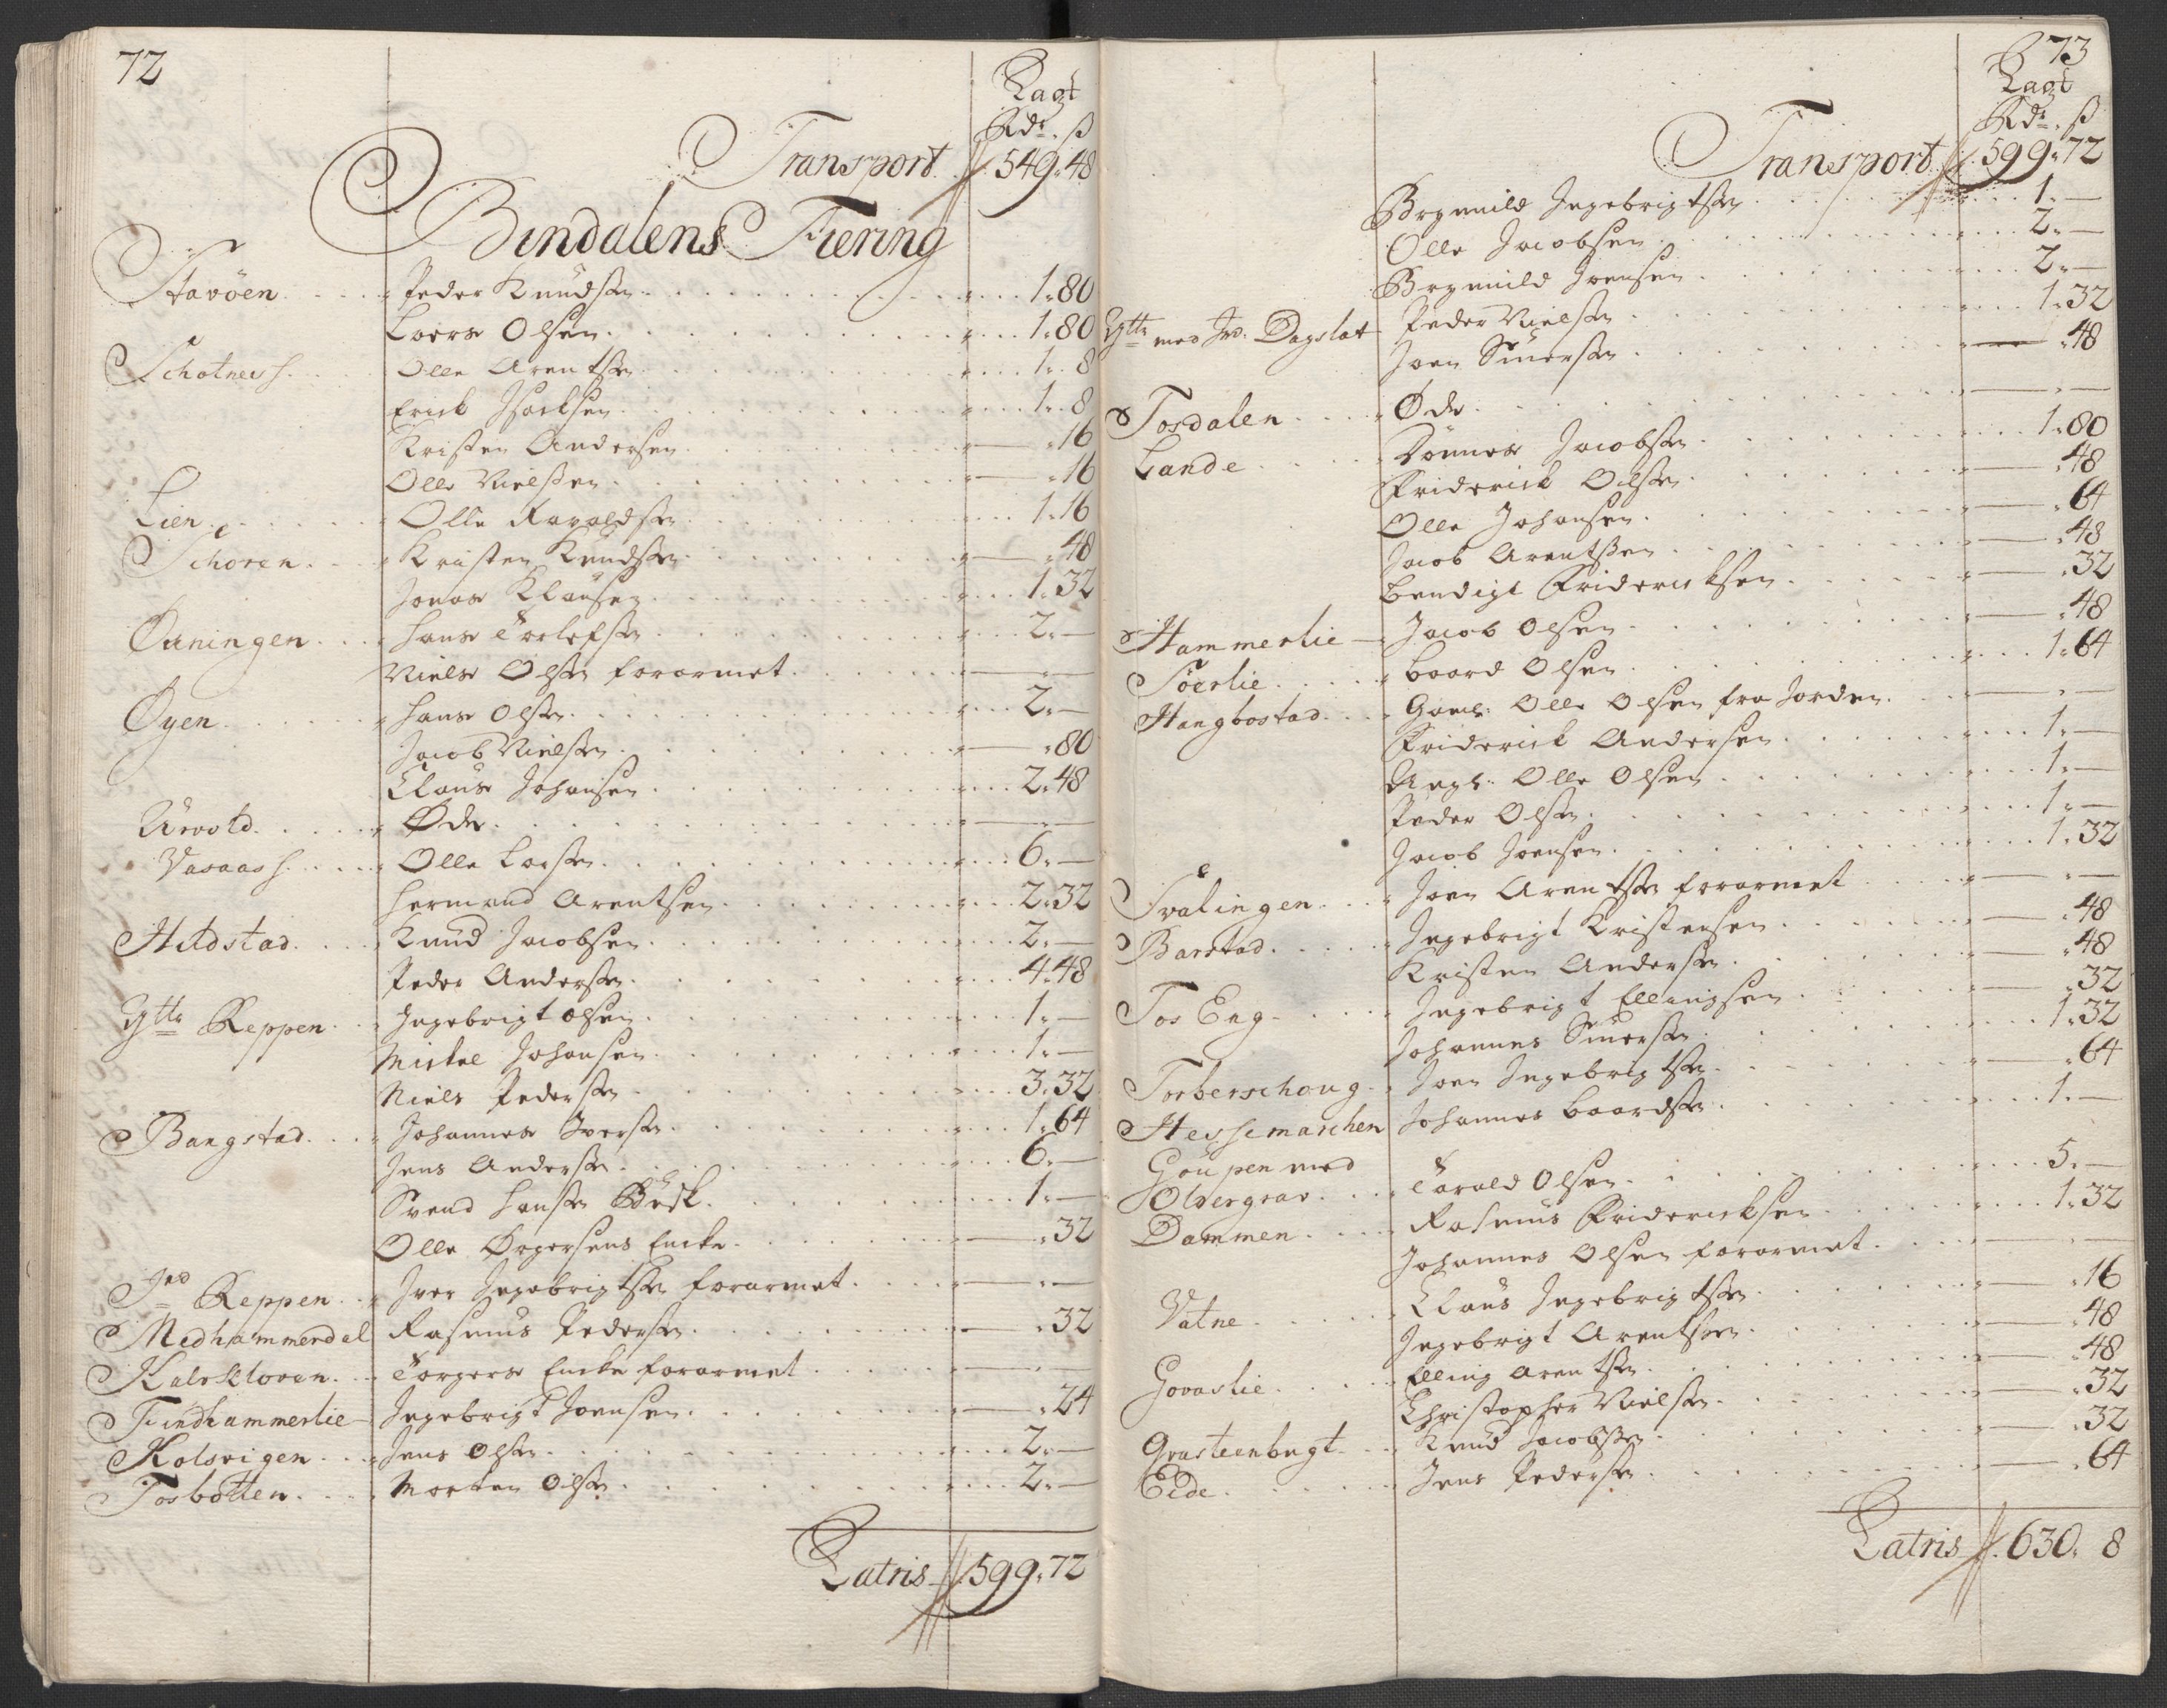 72
Lagt
Rdr. ß
Transport 549. 48
Bindalens Fiering
Havöen Peder Knudsen 1. 80
Laers Olsen 1. 80
Schotness Olle Arentsen 1. 8
Erick Isacksen 1. 8
Kristen Andersen - 16
Olle Nielsen - 16
Lien Olle Ravaldsen 1. 16
Schoren Kristen Knudsen - 48
Jonas Klausen 1. 32
Øeningen Hans Torlefsen 2. -
Niels Olsen forarmet - . -
Øyen Hans Olsen 2. -
Jacob Nielsen - 80
Claus Johansen 2. 48
Urvold Øde - . -
Vasaass Olle Larsen 6. -
Hermand Arentsen 2. 32
Hildstad Knud Jacobsen 2. -
Peder Andersen 4. 48
Yttr Reppen Ingebrigt Olsen 1. -
Mickel Johansen 1. -
Niels Pedersen 3. 32
Bangstad Johannes Iversen 1. 64
Jens Andersen 6. -
Svend Hansen Busk 1. -
Olle Ørgersens Encke - 32
Ind Reppen Iver Ingebrigtsen forarmet - . -
Medhammerdal Rasmus Pedersen - 32
Kalfkloven Torgers Encke forarmet - . -
Findhammerlie Ingebrigt Joensen - 24
Kolsvigen Jens Olsen 2. -
Tosbotten Morten Olsen 2. -
Latris 599. 72
73
Lagt
Rdr. ß
Transport 599. 72
Brynnild Ingebrigtsen 1. -
Olle Jacobsen 2. -
Brynnild Joensen 2. -
Yttr med Ind. Dagslat Peder Nielsen 1. 32
Joen Siuersen - 48
Tosdalen Øde - . -
Lande Tønnes Jacobsen 1. 80
Friderick Olsen - 48
Olle Johansen - 64
Jacob Arentsen - 48
Bendigt Fridericksen - 32
Hammerlie Jacob Olsen - 48
Søerlie Baard Olsen 1. 64
Hangbostad Gaml: Olle Olsen fra Jorden - . -
Friderick Andersen 1. -
Ungl: Olle Olsen 1. -
Peder Olsen 1. -
Jacob Joensen 1. 32
Svalingen Joen Arentsen forarmet - . -
Barstad Ingebrigt Kristensen - 48
Kristen Andersen - 48
Tos Eng Ingebrigt Ellingsen - 32
Johannes Siuersen 1. 32
Torberschoug Joen Ingebrigtsen - 64
Hessemarchen Johannes Baardsen 1. -
Goupen med
Oldergrav Tarald Olsen 5. -
Dammen Rasmus Fridericksen 1. 32
Johannes Olsen forarmet - . -
Vatne Claus Ingebrigtsen - 16
Ingebrigt Arentsen - 48
Govaslie Elling Arentsen - 48
Christopher Nielsen - 32
Grasteenbugt Knud Jacobsen - 32
Eide Jens Pedersen - 64
Latris 630. 8